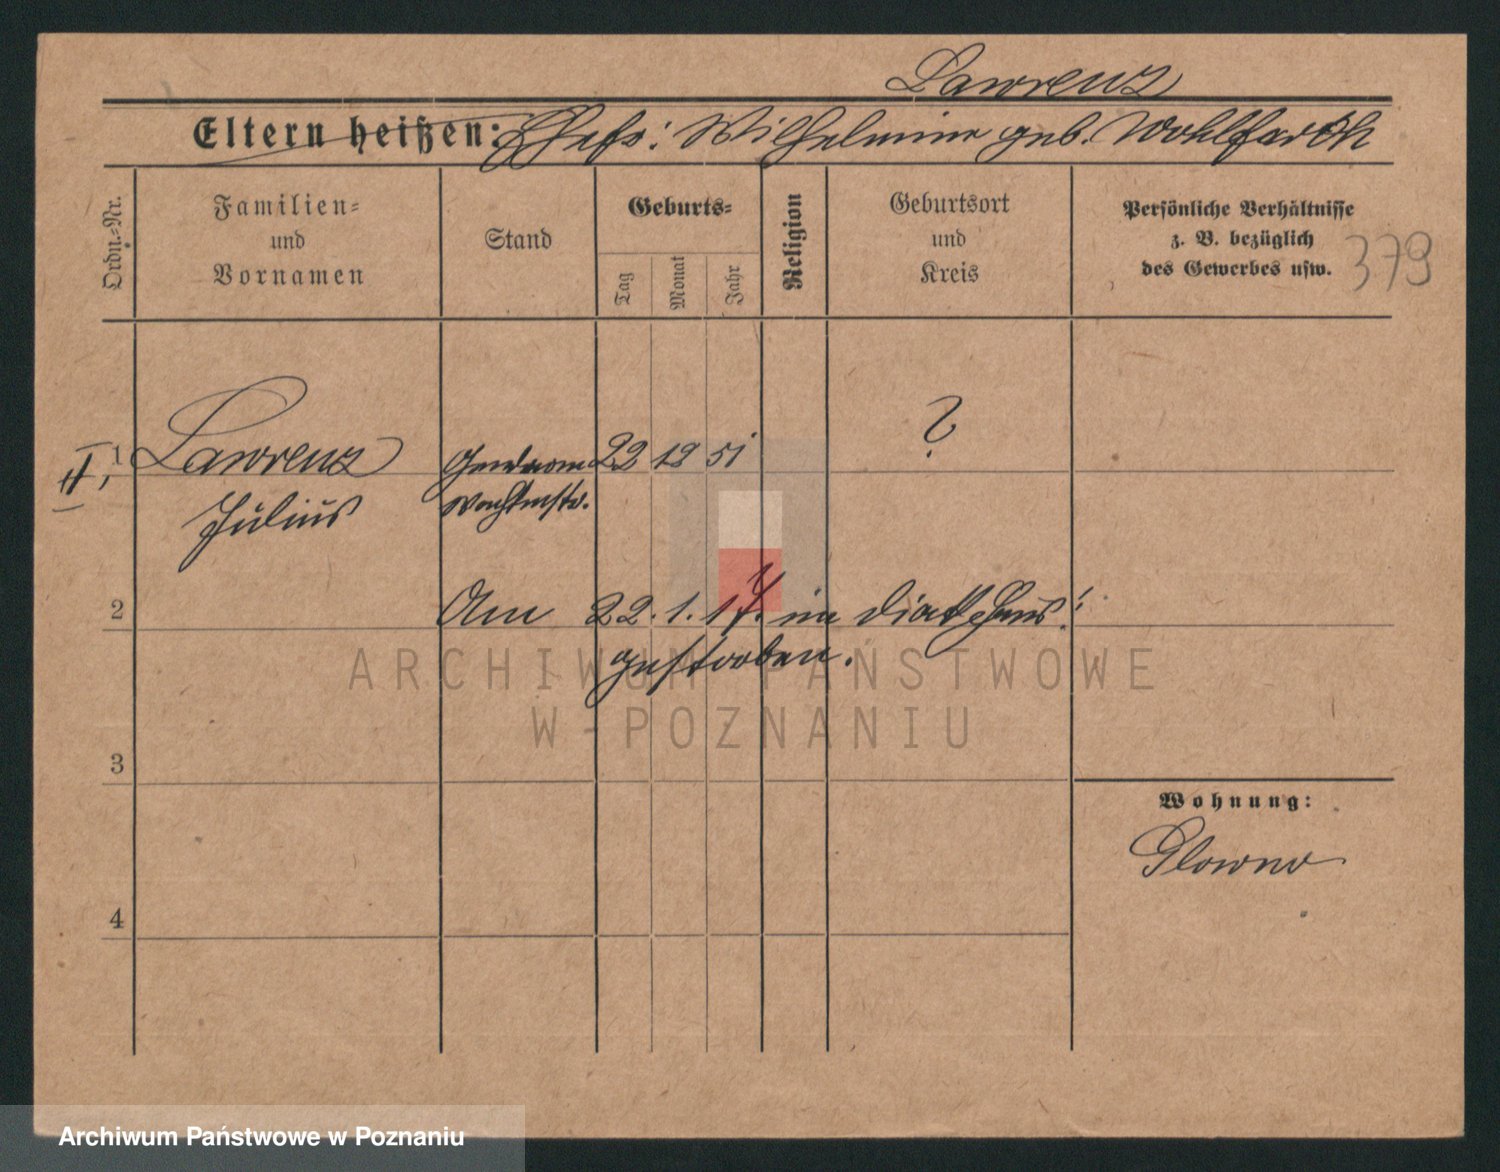 Lawrenz
Eltern heißen: Ehefr: Wilhelmine geb. Wohlfarth
Ordn.-Nr.
Familien-
und
Vornamen
Stand
Geburts-
Tag
Monat
Jahr
Religion
Geburtsort
und
Kreis
Persönliche Verhältnisse
z. B. bezüglich
des Gewerbes usw.
379
II, 1 Lawrenz Gendarm 22 12 51 ?
Julius Wachtmstr.
2 Am 22. 1. 17. im
gestorben.
3
Wohnung:
Glowno
4
ARCHIWUM PAŃSTWOWE
W POZNANIU
Archiwum Państwowe w Poznaniu